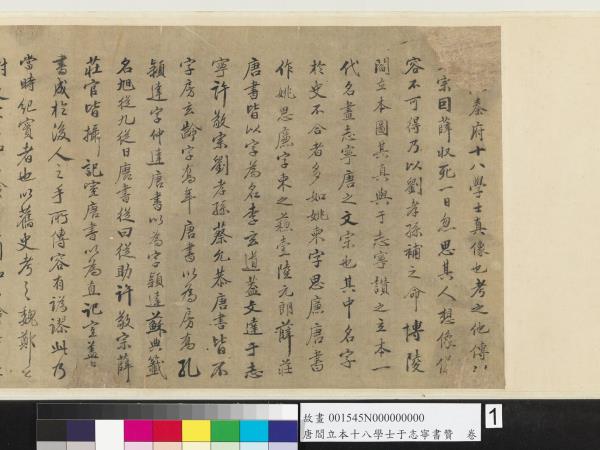 秦府十八學士真像也考之他傳
宗因薛收死一日忽思其人想像
容不可得乃以劉孝孫補之命博陵
閻立本圖其真與于志寧讚之立本一
代名畫志寧唐之文宗也其中名字
於史不合者多如姚柬字思廉唐書
作姚思廉字柬之蘇壹陸元朗薛莊
唐書皆以字為名李玄道蓋文達于志
寧許敬宗劉孝孫蔡允恭唐書皆不
字房玄齡字喬年唐書以為房喬孔
穎達字仲達唐書以為字穎達蘇典籤
名旭從九從日唐書從曰從助許敬宗薛
莊官皆攝記室唐書以為直記室蓋
書成於後人之手所傳容有謬此乃
當時紀實者也以舊史考之魏鄭公
故畫 001545N000000000
唐閻立本十八學士于志寧書贊 卷
1